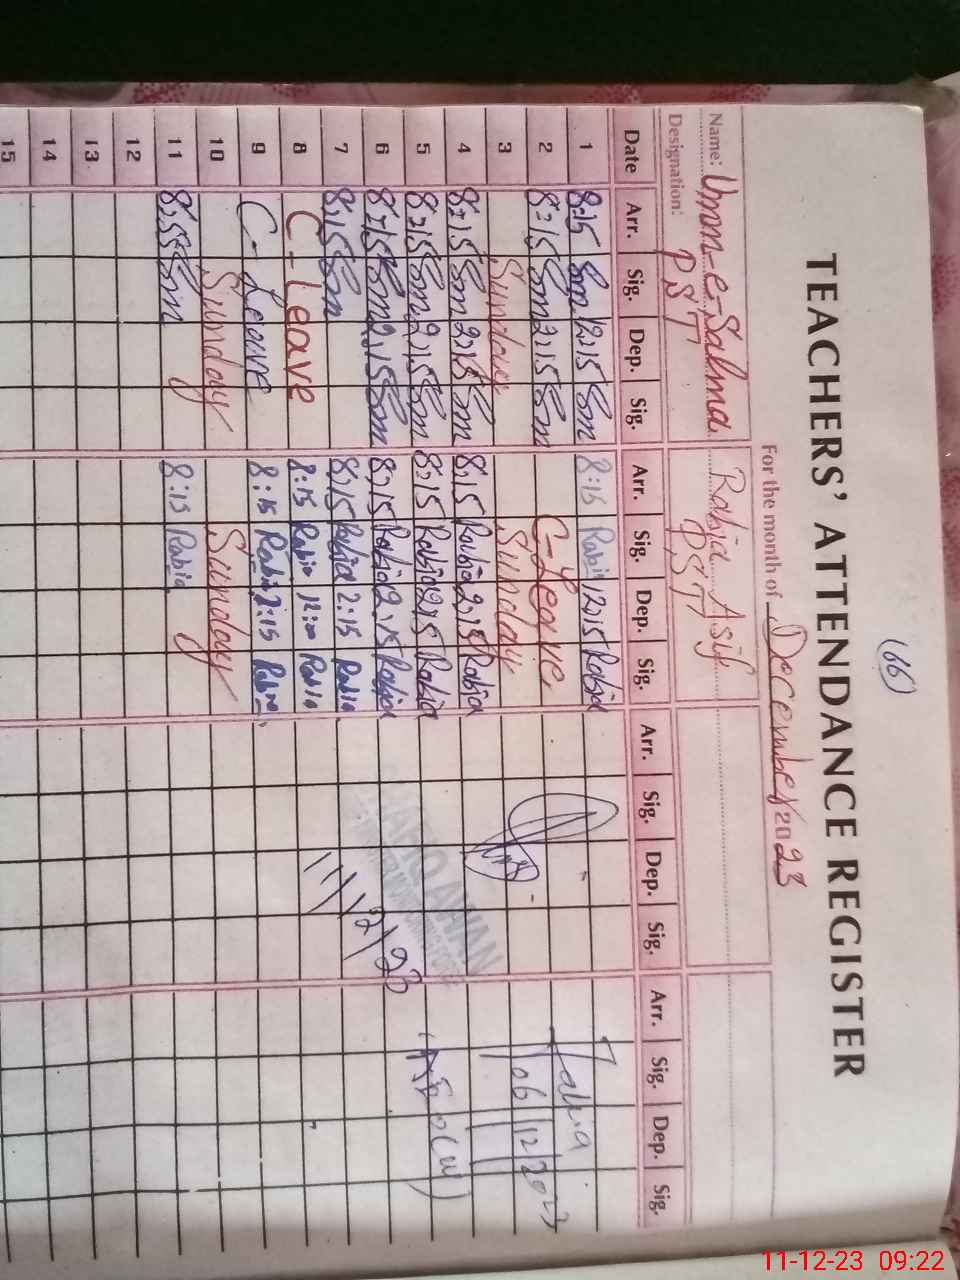 (66)
TEACHERS' ATTENDANCE REGISTER
For the month of December 2023
Name: Umm-e-Salma Rabia Asif
Designation: PST PST
Date Arr. Sig. Dep. Sig. Arr. Sig. Dep. Sig. Arr. Sig. Dep. Sig. Arr. Sig. Dep. Sig.
1 8:15 Sm 12:15 Sm 8:15 Rabia 12:15 Rabia
2 8:15 Sm 2:15 Sm C-Leave
3 Sunday Sunday
4 8:15 Sm 2:15 Sm 8:15 Rabia 2:15 Rabia
5 8:15 Sm 2:15 Sm 8:15 Rabia 2:15 Rabia
6 8:15 Sm 2:15 Sm 8:15 Rabia 2:15 Rabia
7 8:15 Sm 8:15 Rabia 2:15 Rabia
8 C-Leave 8:15 Rabia 12:00 Rabia
9 C-Leave 8:15 Rabia 2:15 Rabia
10 Sunday Sunday
11 8:15 Sm 8:15 Rabia
12
13
14
15
AWAN
11/12/23
06/12/2023
11-12-23 09:22